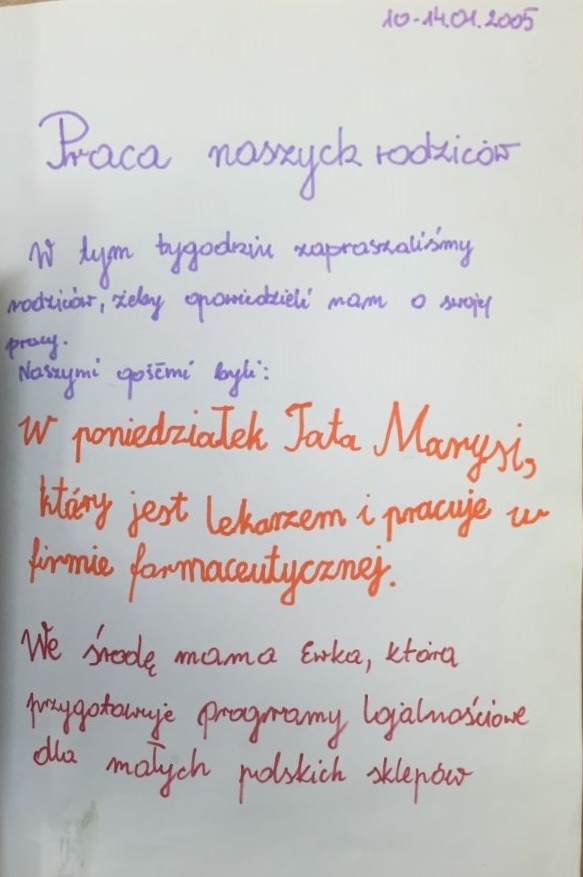 10-14.01.2005
Praca naszych rodziców
W tym tygodniu zapraszaliśmy
rodziców, żeby opowiedzieli nam o swojej
pracy.
Naszymi gośćmi byli:
W poniedziałek Tata Marysi,
który jest lekarzem i pracuje w
firmie farmaceutycznej.
We środę mama Ewka, która
przygotowuje programy lojalnościowe
dla małych polskich sklepów